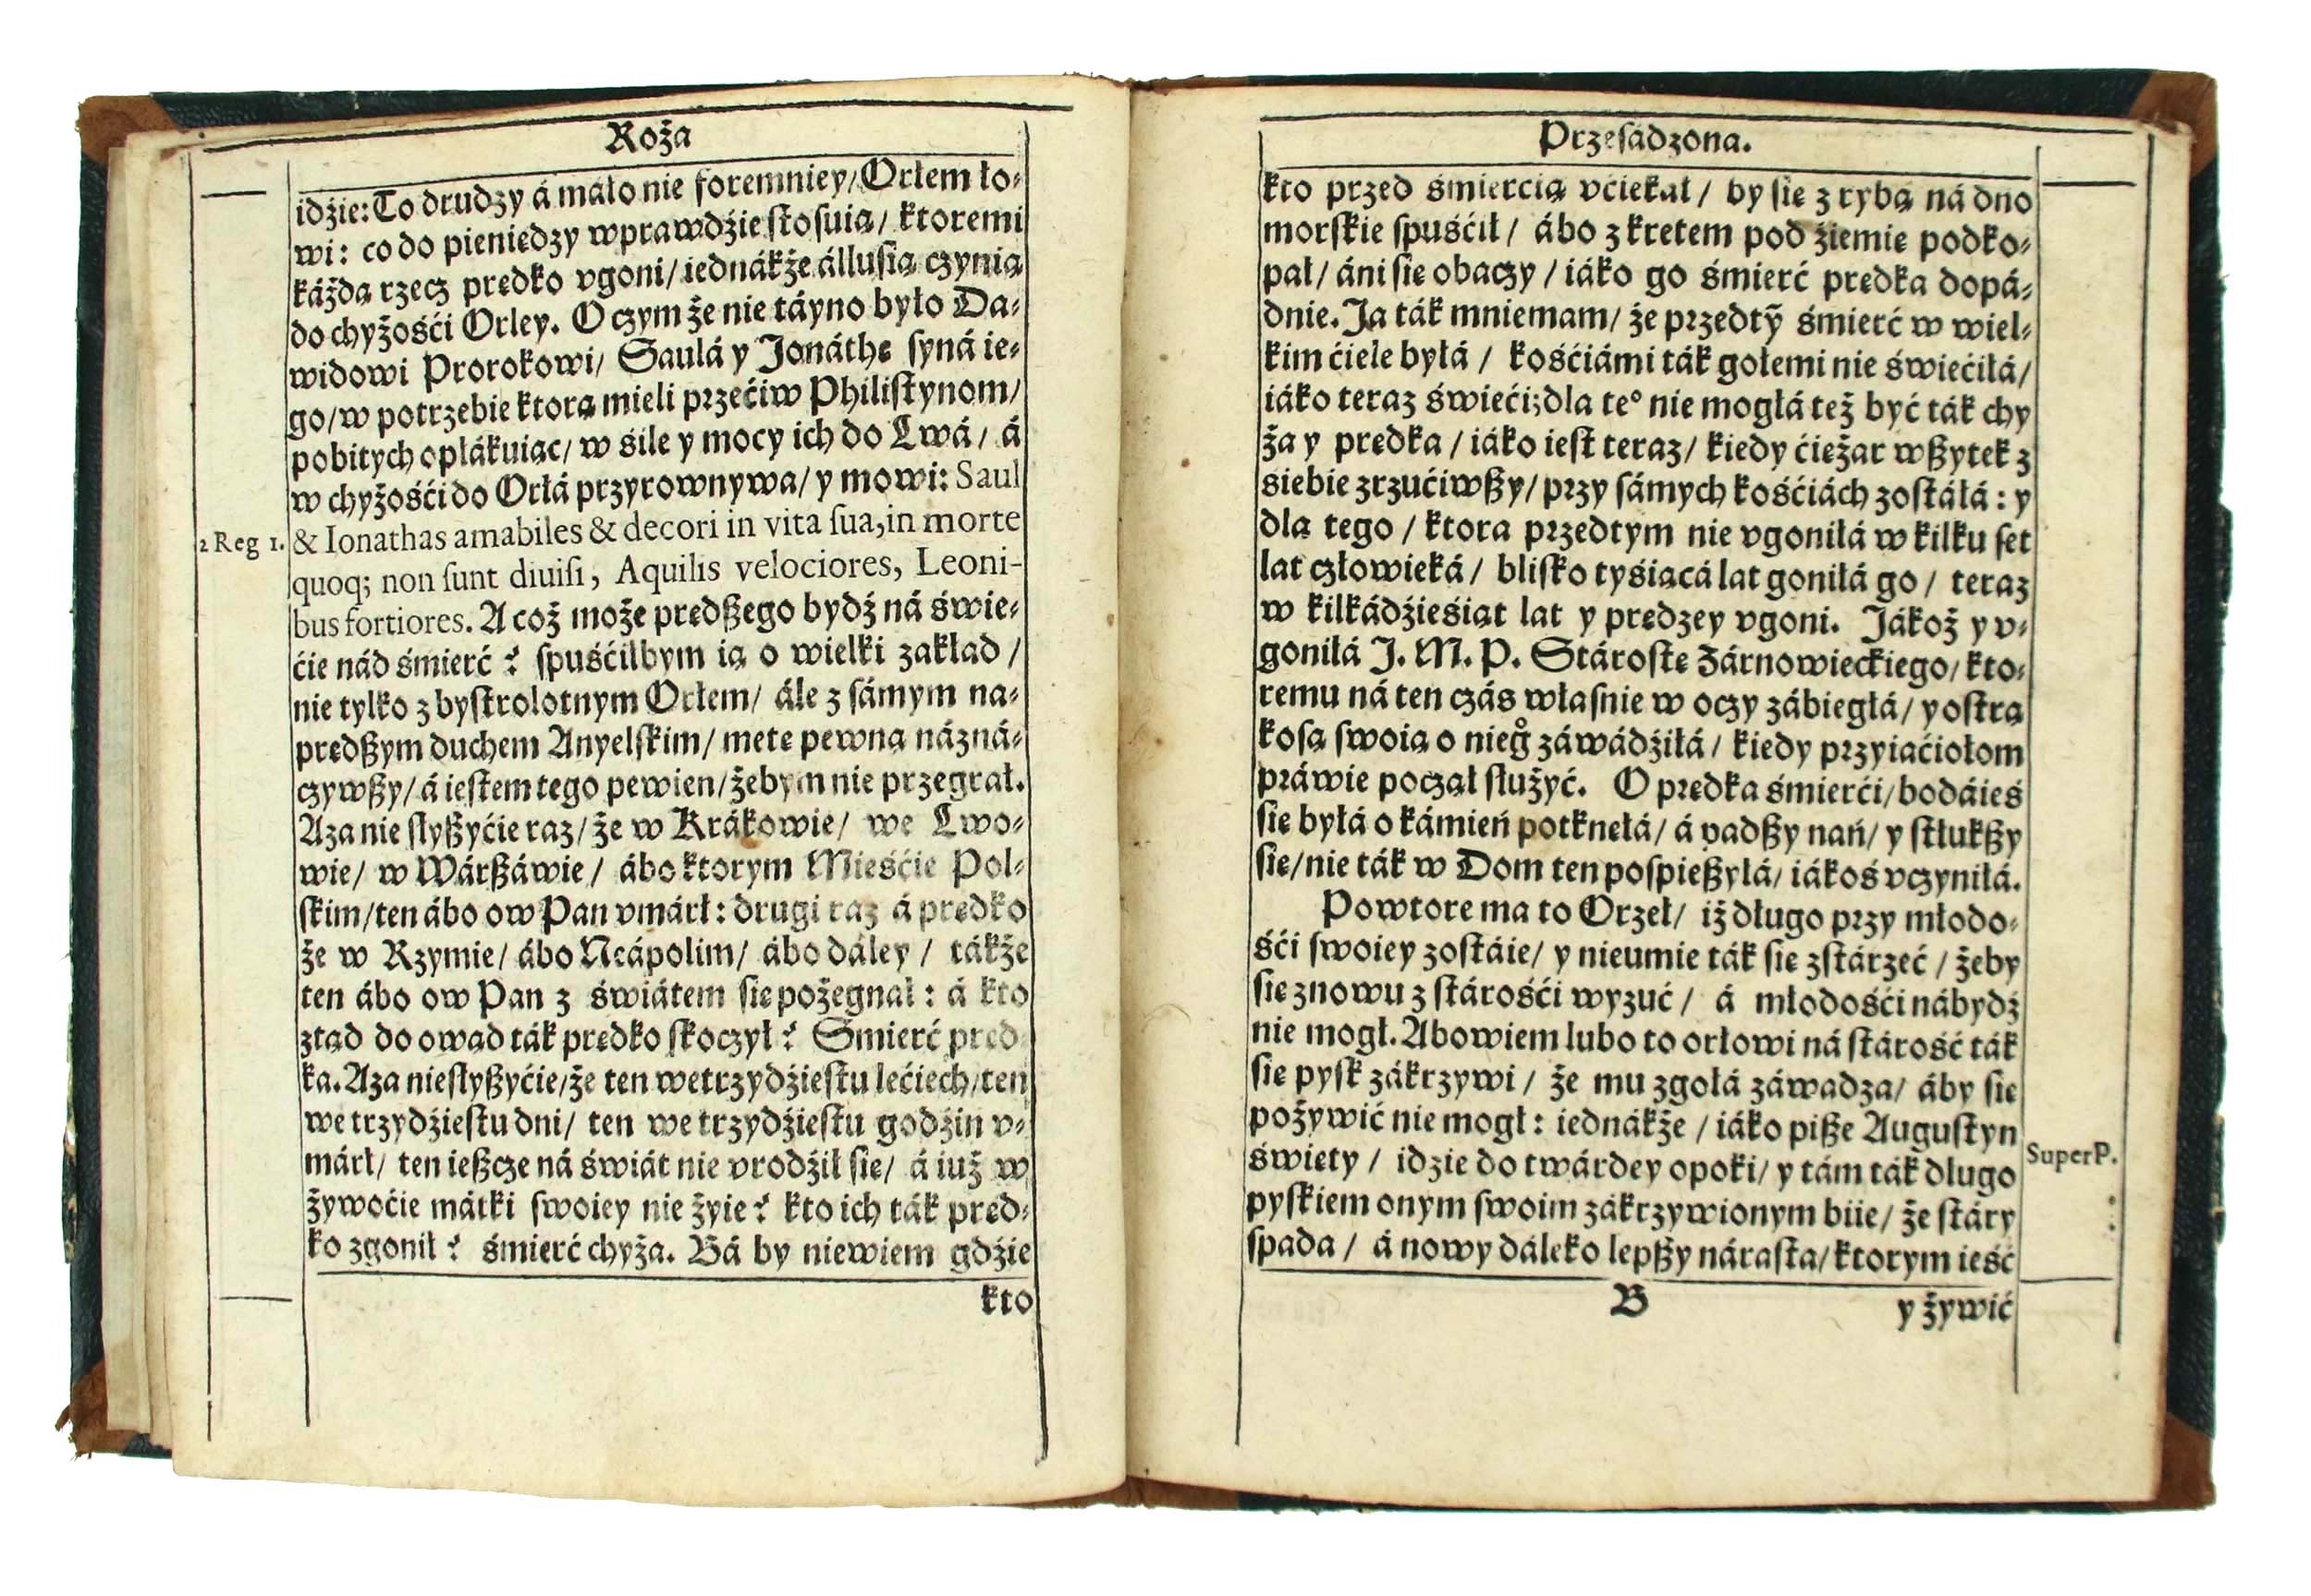 Roża
idźie: To drudzy á máło nie foremniey/ Orłem ło⸗
wi: co do pieniedzy wprawdźie stosuią/ ktoremi
káżdą rzecz prędko vgoni/ iednákże állusią czynią
do chyżośći Orley. O czym że nie táyno było Da⸗
widowi Prorokowi/ Saulá y Jonáthę syná ie⸗
go/ w potrzebie ktorą mieli przećiw Philistynom/
pobitych opłákuiąc/ w śile y mocy ich do Lwá/ á
w chyżośći do Orłá przyrownywa/ y mowi: Saul
2 Reg 1.
& Ionathas amabiles & decori in vita ſua, in morte
quoq; non ſunt diuiſi, Aquilis velociores, Leoni-
bus fortiores. A coż może prędßego bydź ná świe⸗
ćie nád śmierć? spuśćilbym ią o wielki zakład/
nie tylko z bystrolotnym Orłem/ ále z sámym na⸗
prędßym duchem Anyelskim/ metę pewną názná⸗
czywßy/ á iestem tego pewien/ żebym nie przegrał.
Aza nie słyßyćie raz/ że w Krákowie/ we Lwo⸗
wie/ w Wárßáwie/ ábo ktorym Mieśćie Pol⸗
skim/ ten ábo ow Pan vmárł: drugi raz á prędko
że w Rzymie/ ábo Neápolim/ ábo dáley/ tákże
ten ábo ow Pan z świátem się pożegnał: á kto
ztąd do owąd ták prędko skoczył? Smierć pręd
ka. Aza niesłyßyćie/ że ten we trzydźiestu lećiech/ ten
we trzydźiestu dni/ ten we trzydźiestu godźin v⸗
márł/ ten ießcze ná świát nie vrodźił się/ á iuż w
żywoćie mátki swoiey nie żyie? kto ich ták pręd⸗
ko zgonił? śmierć chyża. Bá by niewiem gdźie
kto
Przesádzona.
kto przed śmiercią vćiekał/ by się z rybą ná dno
morskie spuśćił/ ábo z kretem pod źiemię podko⸗
pał/ áni się obaczy/ iáko go śmierć prędka dopá⸗
dnie. Ja ták mniemam/ że przedtỹ śmierć w wiel⸗
kim ćiele byłá/ kośćiámi ták gołemi nie świećiłá/
iáko teraz świeći; dla te° nie mogłá też być ták chy
ża y prędka/ iáko iest teraz/ kiedy ćiężar wßytek z
siebie zrzućiwßy/ przy sámych kośćiách zostáłá: y
dla tego/ ktora przedtym nie vgoniłá w kilku set
lat człowieká/ blisko tyśiącá lat goniłá go/ teraz
w kilkádźieśiąt lat y prędzey vgoni. Jákoż y v⸗
goniłá J. M. P. Stárostę Żárnowieckiego/ kto⸗
remu ná ten czás właśnie w oczy zábiegłá/ y ostrą
kosą swoią o nieg° záwádźiłá/ kiedy przyiaćiołom
práwie począł służyć. O prędka śmierći/ bodáieś
się byłá o kámień potknełá/ á vpadßy nań/ y stłukßy
się/ nie ták w Dom ten pospießyłá/ iákoś vczyniłá.
Powtore ma to Orzeł/ iż długo przy młodo⸗
śći swoiey zostáie/ y nieumie ták się zstárzeć/ żeby
się znowu z stárośći wyzuć/ á młodośći nábydź
nie mogł. Abowiem lubo to orłowi ná stárość ták
się pysk zákrzywi/ że mu zgołá záwadza/ áby się
pożywić nie mogł: iednákże/ iáko piße Augustyn
Super P.
święty/ idzie do twárdey opoki/ y tám ták długo
pyskiem onym swoim zákrzywionym biie/ że stáry
spada/ á nowy dáleko lepßy nárasta/ ktorym ieść
B
y żywić